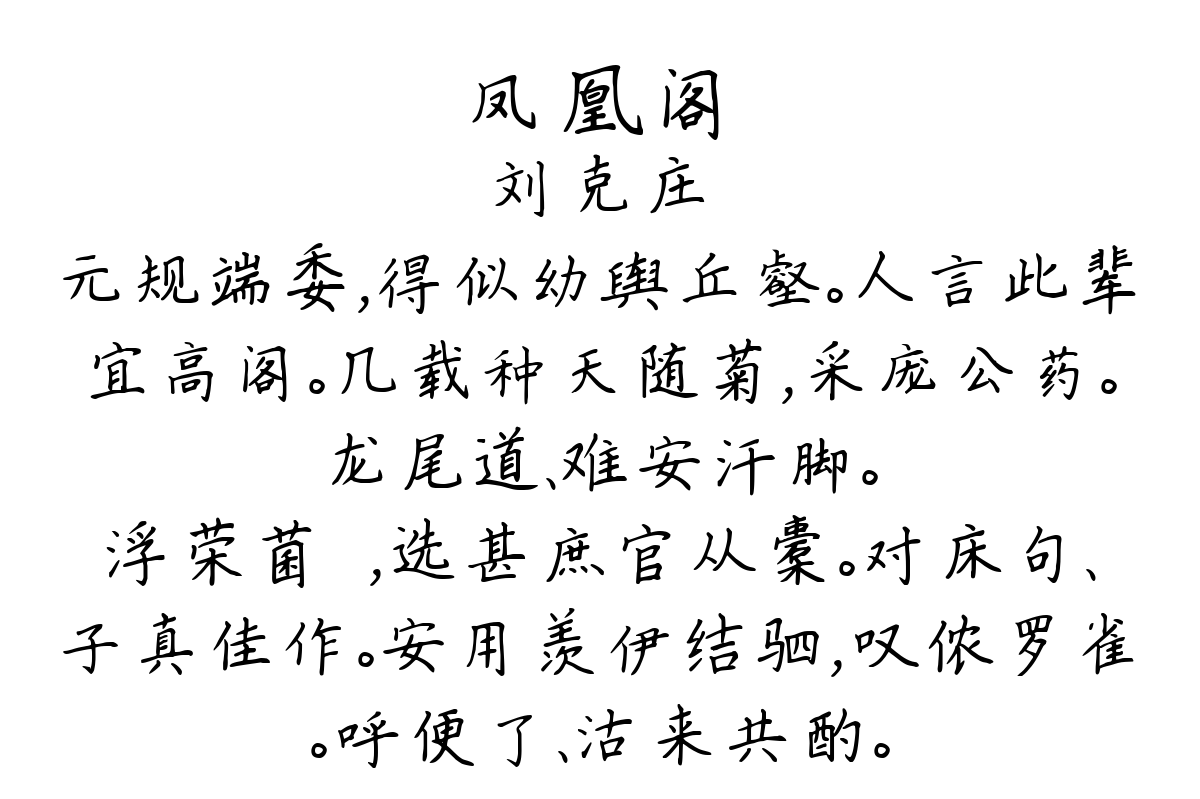 凤凰阁
刘克庄
元规端委,得似幼舆丘壑。人言此辈
宜高阁。几载种天随菊,采庞公药。
龙尾道、难安汗脚。
浮荣菌 ,选甚庶官从橐。对床句、
子真佳作。安用羡伊结驷,叹侬罗雀
。呼便了、沽来共酌。